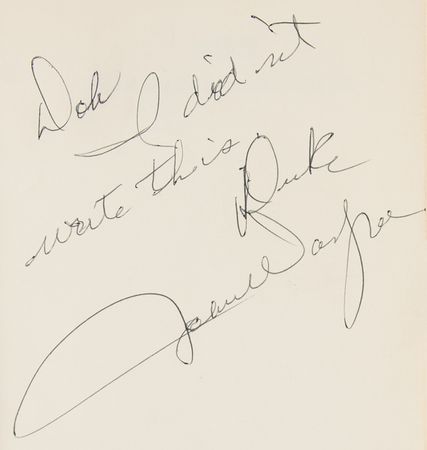 Dob
I didn't
write this.
Duke
John Wayne